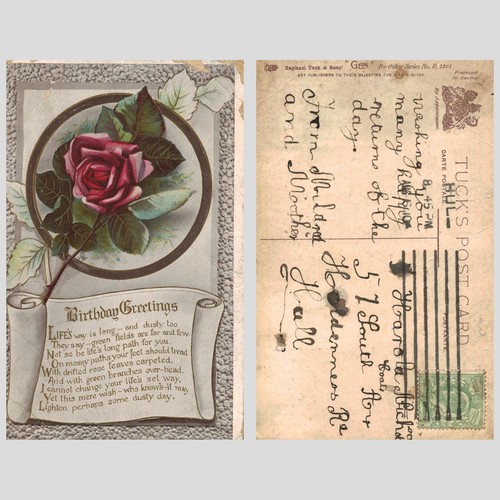 Birthday Greetings
LIFE'S way is long — and dusty too
They say — green fields are far and few.
Not so be life's long path for you.
On mossy paths your feet should tread
With drifted rose leaves carpeted.
And with green branches over-head.
I cannot change your life's set way,
Yet this mere wish — who knows — it may
Lighten perhaps some dusty day.
Raphael Tuck & Sons' "GEM" Birthday Series No. B.
TUCK'S POST CARD
CARTE POSTALE
HULL
8.45 PM
Wishing you
many happy
returns of the
day.
From Mildred
and Mother
Harold
57 South
Holderness Rd
Hull